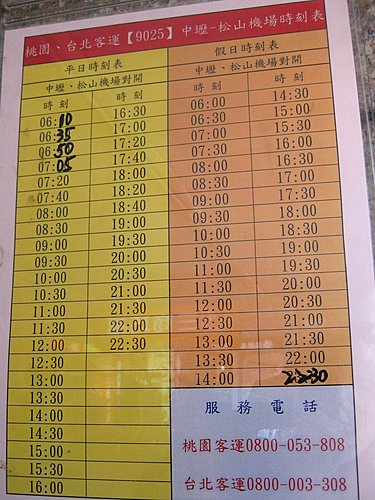 桃園、台北客運【9025】中壢-松山機場時刻表
平日時刻表
中壢、松山機場對開
時 刻
06:10
06:35
06:50
07:05
07:20
07:40
08:00
08:30
09:00
09:30
10:00
10:30
11:00
11:30
12:00
12:30
13:00
13:30
14:00
14:30
15:00
15:30
16:00
時 刻
16:30
17:00
17:20
17:40
18:00
18:20
18:40
19:00
19:30
20:00
20:30
21:00
21:30
22:00
22:30
假日時刻表
中壢、松山機場對開
時 刻
06:00
06:30
07:00
07:30
08:00
08:30
09:00
09:30
10:00
10:30
11:00
11:30
12:00
12:30
13:00
13:30
14:00
時 刻
14:30
15:00
15:30
16:00
16:30
17:00
17:30
18:00
18:30
19:00
19:30
20:00
20:30
21:00
21:30
22:00
22:30
服 務 電 話
桃園客運0800-053-808
台北客運0800-003-308